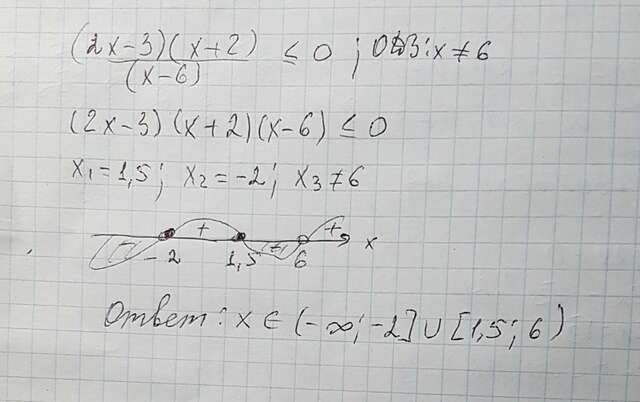 (2x-3)(x+2)/(x-6) ≤ 0 ; ОДЗ: x ≠ 6
(2x-3)(x+2)(x-6) ≤ 0
x₁ = 1,5; x₂ = -2; x₃ ≠ 6
- + - + x
-2 1,5 6
Ответ: x ∈ (-∞; -2] ∪ [1,5; 6)